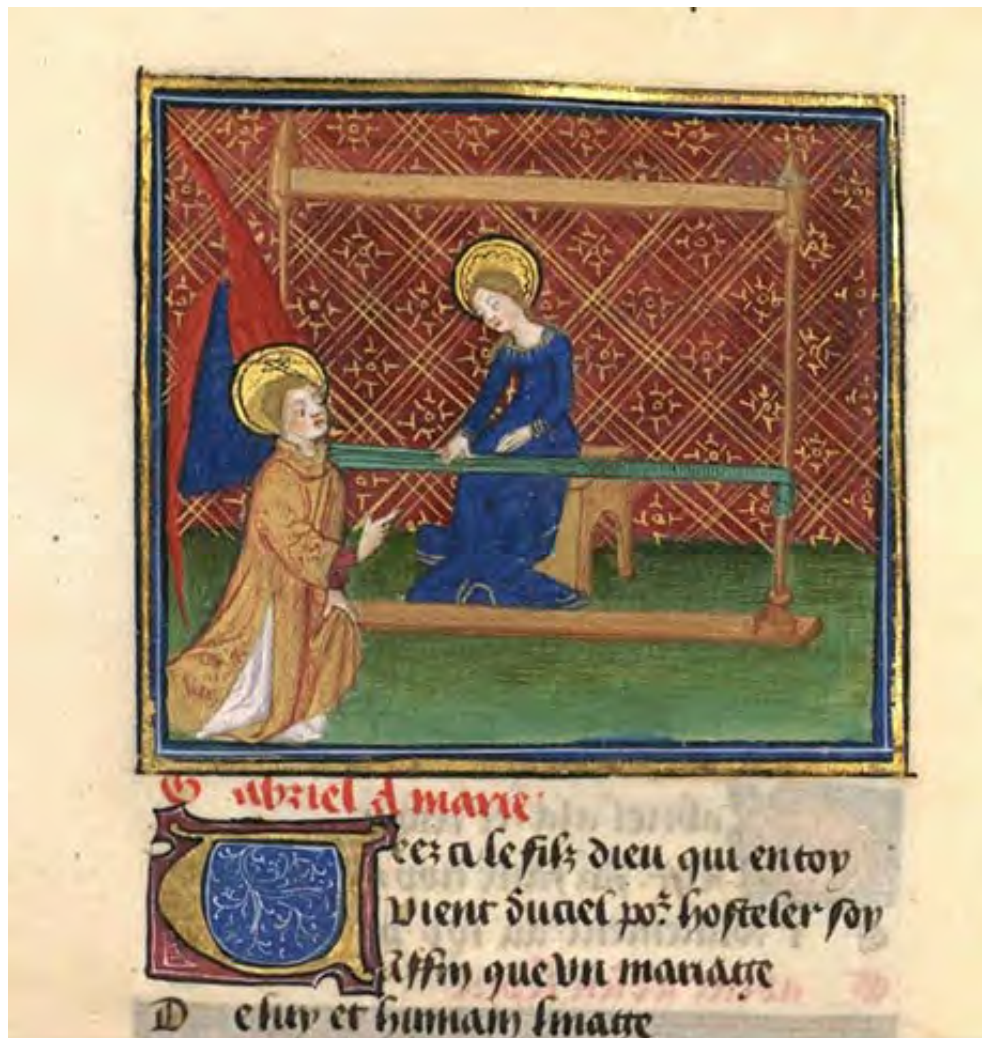 Gabriel a marie
Veez ci le filz dieu qui en toy
Vient du ciel po² hosteler soy
Affin que vn mariage
De luy et humain linage